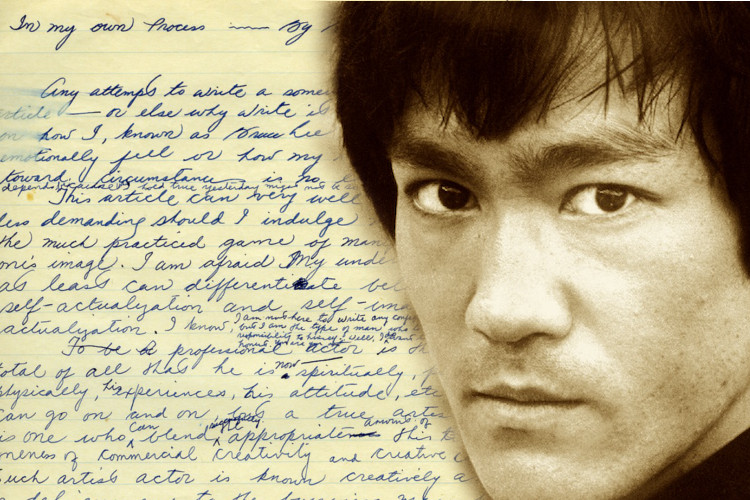 In my own Process By
Any attempts to write a some
article — or else why write is
on how I, known as Bruce Lee
emotionally feel or how my
toward circumstance is so
This article can very well
less demanding should I indulge
the much practiced game of man
one's image. I am afraid My unde
as least can differentiate be
self-actualization and self-im
actualization. I know,
I am not here to write any conf
but I am the type of man who
honest
To be a professional actor is th
total of all that he is now — spiritually,
physically, his experiences, his attitude, etc
can go on and on, a true artis
is one who can blend appropriate amount of this
oneness of commercial creativity and creative c
Such artist actor is known creatively a